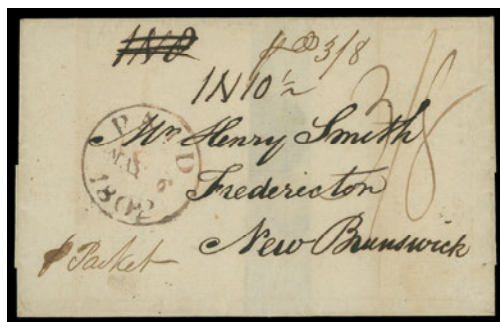 1N8
pd 3/8
1N10½
3/8
PAID
MAY 6
1802
Mr. Henry Smith
Fredericton
New Brunswick
p Packet